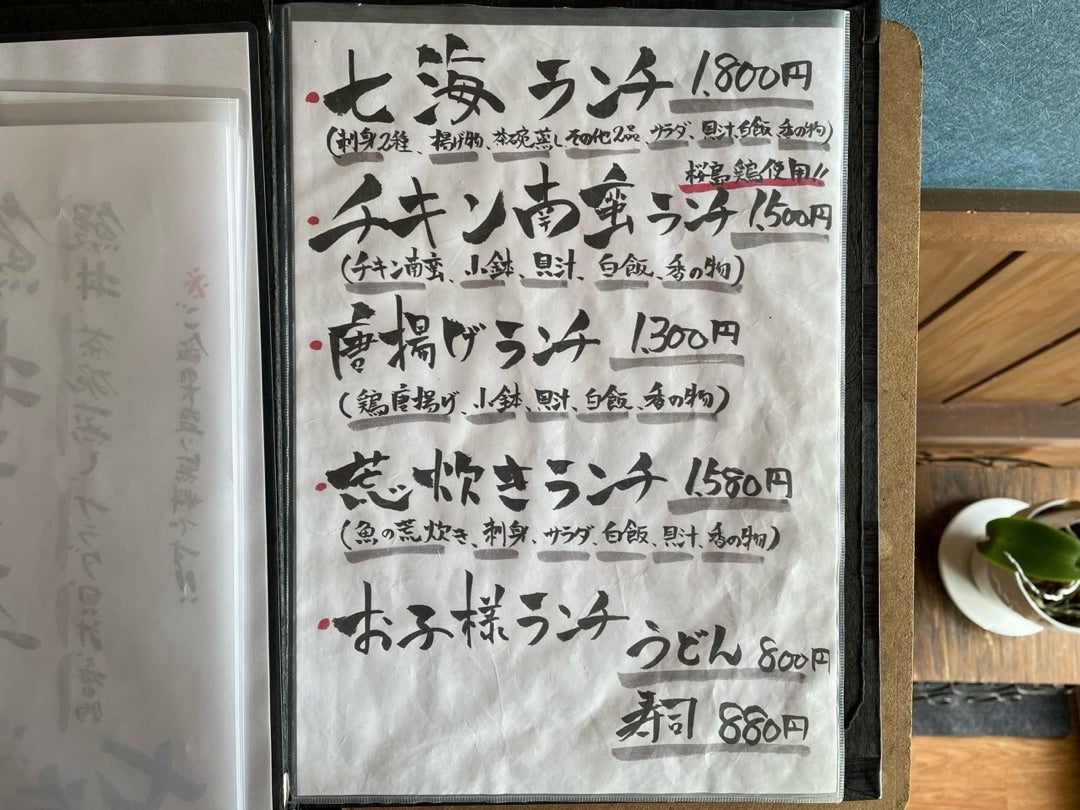 七海ランチ 1.800円
(刺身2種、揚げ物、茶碗蒸しその他2品、サラダ、貝汁、白飯、香の物)
桜島鶏使用!!
チキン南蛮ランチ 1.500円
(チキン南蛮、小鉢、貝汁、白飯、香の物)
唐揚げランチ 1.300円
(鶏唐揚げ、小鉢、貝汁、白飯、香の物)
荒炊きランチ 1.580円
(魚の荒炊き、刺身、サラダ、白飯、貝汁、香の物)
お子様ランチ
うどん 800円
寿司 880円